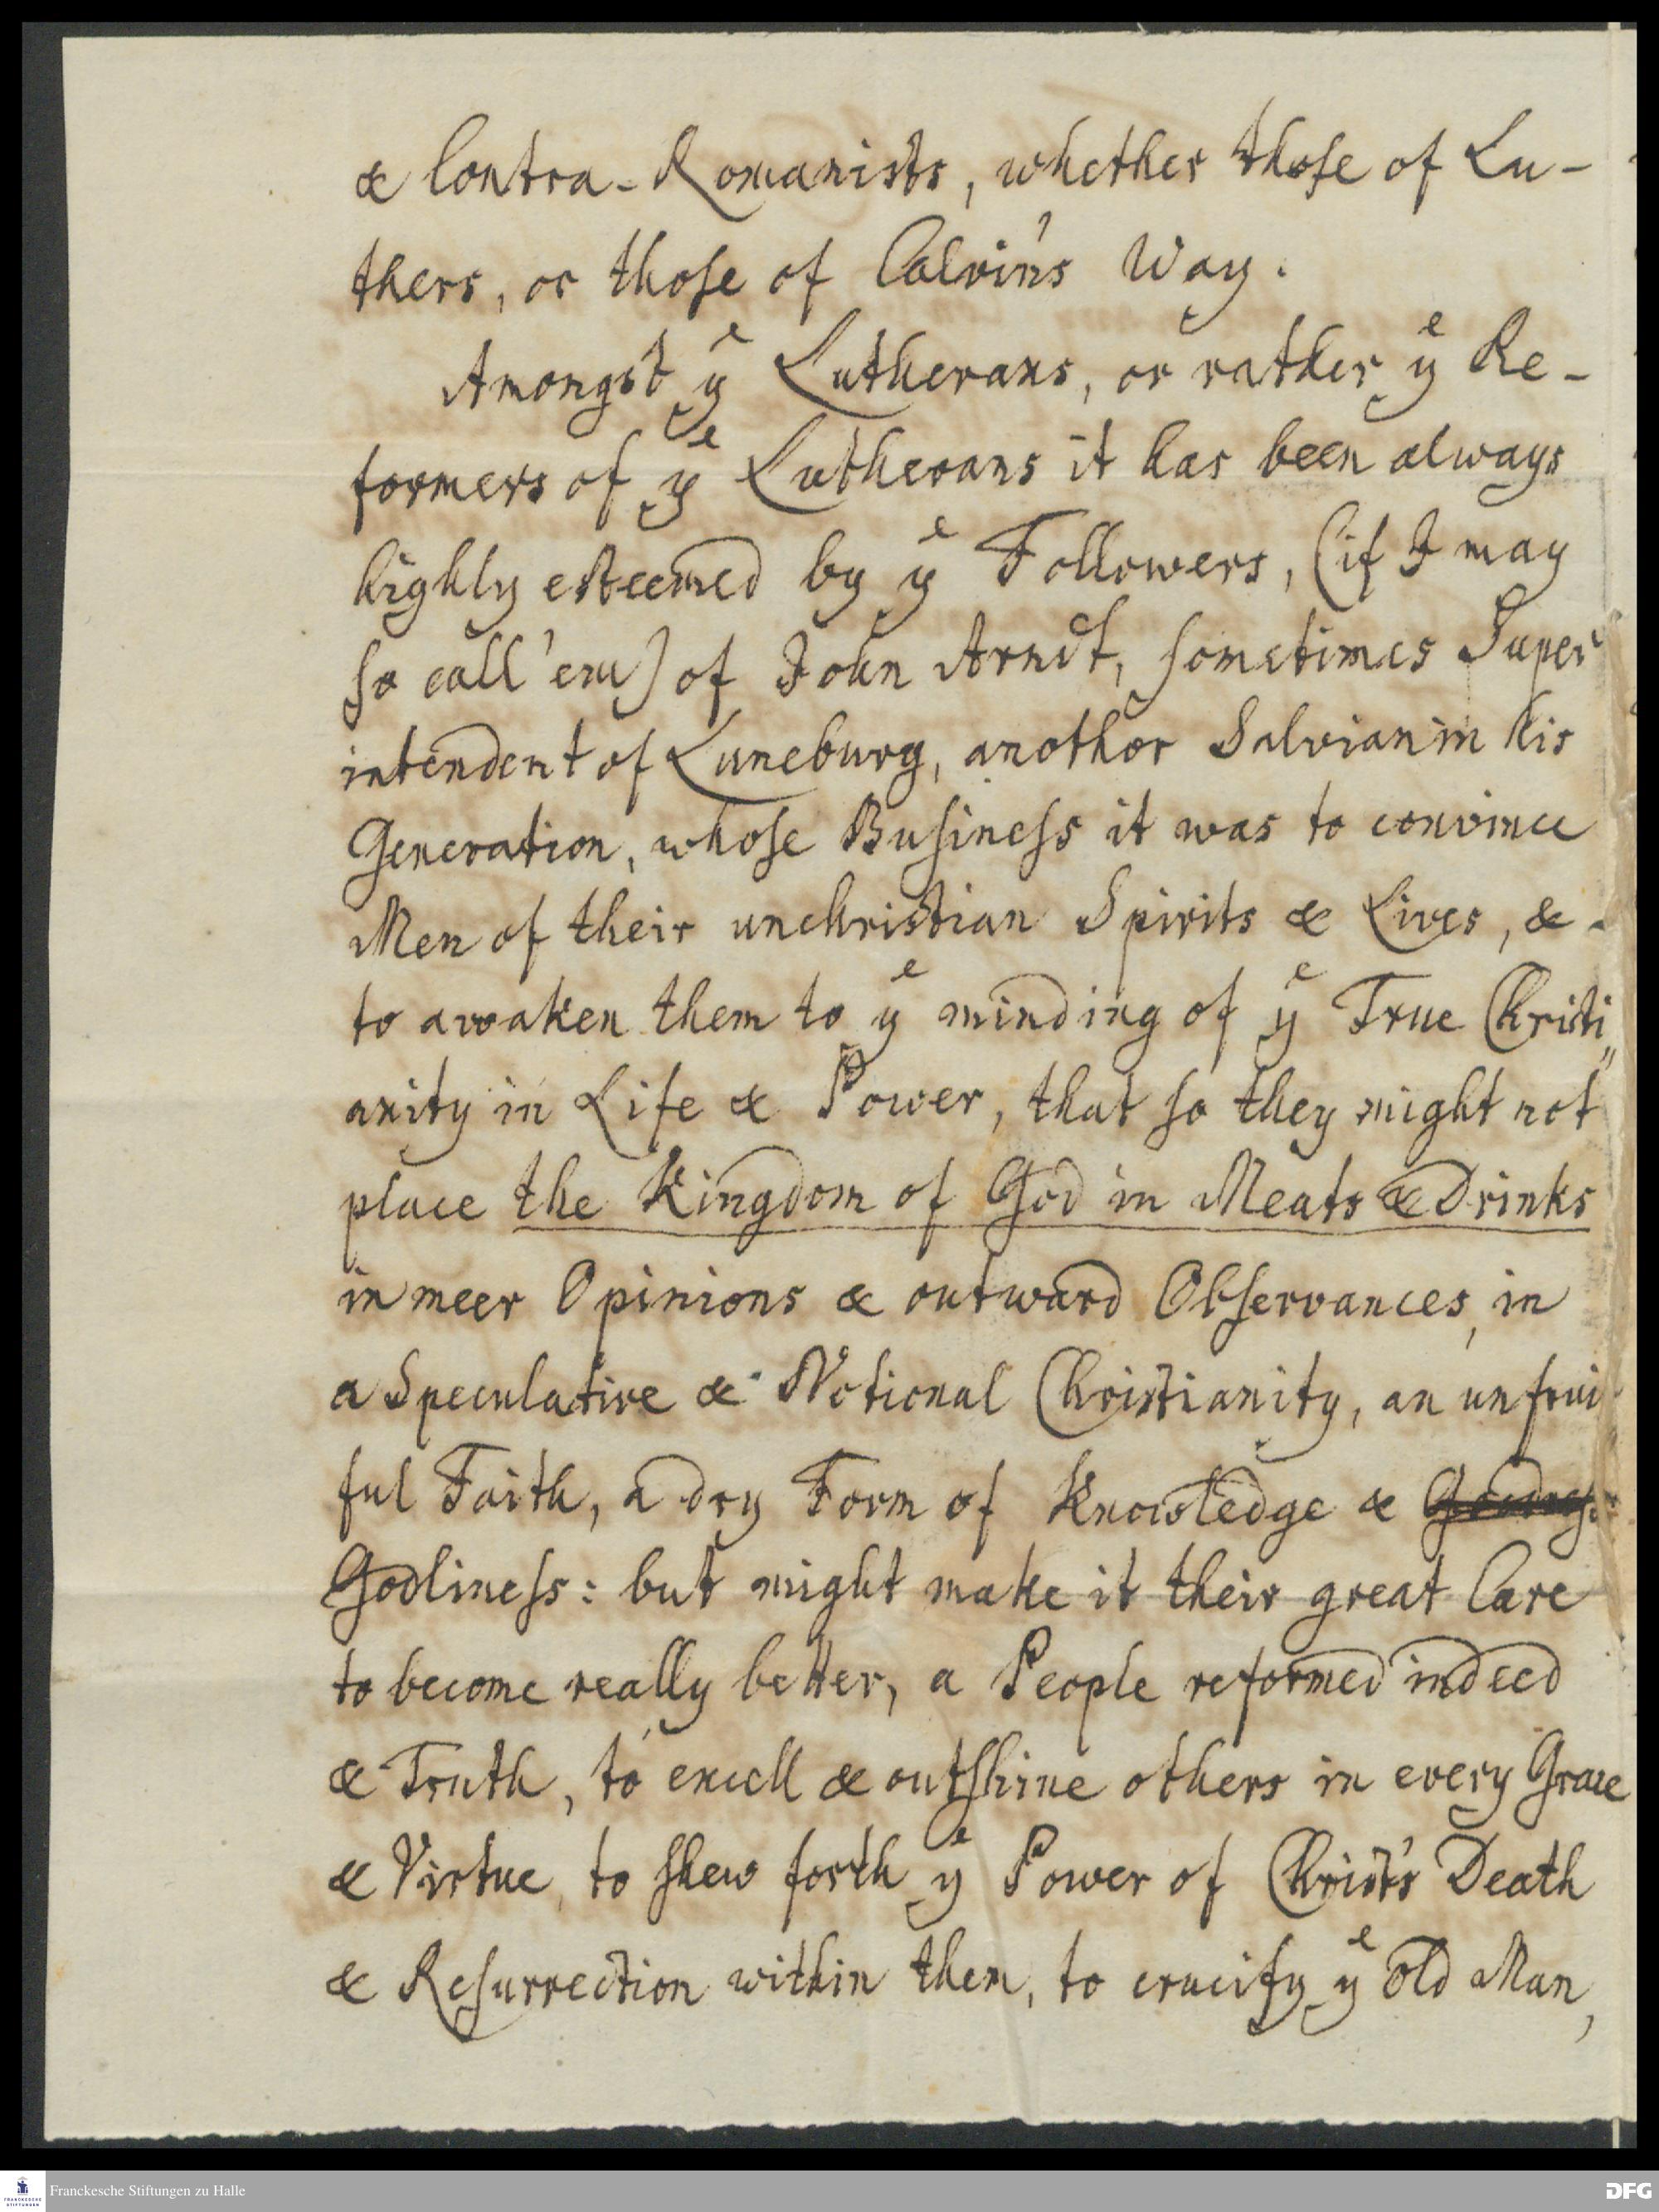 & Contra-Romanists, whether those of Lu-
thers, or those of Calvin's Way.
Amongst yͤ Lutherans, or rather yͤ Re-
formers of yͤ Lutherans it has been always
highly esteemed by yͤ Followers, (if I may
so call 'em) of John Arndt, sometimes Super
intendent of Luneburg, another Salvian in his
Generation, whose Business it was to convince
Men of their unchristian Spirits & Lives, &
to awaken them to yͤ minding of yͤ True Christi„
anity in Life & Power, that so they might not
place the Kingdom of God in Meats & Drinks
in meer Opinions & outward Observances, in
a Speculative & Notional Christianity, an unfrui
ful Faith, a dry Form of Knowledge &
Godliness: but might make it their great Care
to become really better, a People reformed indeed
& Truth, to excell & outshine others in every Grace
& Virtue, to shew forth yͤ Power of Christ's Death
& Resurrection within them, to crucify yͤ old Man,
FRANCKESCHE STIFTUNGEN
Franckesche Stiftungen zu Halle
DFG